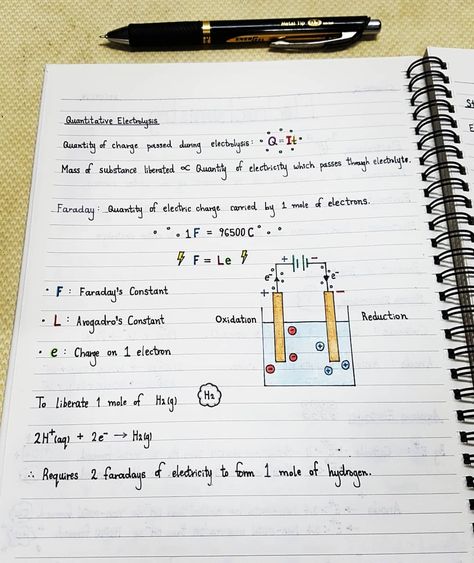 Metal Tip
Quantitative Electrolysis
Quantity of charge passed during electrolysis: Q = It
Mass of substance liberated ∝ Quantity of electricity which passes though electrolyte.
Faraday: Quantity of electric charge carried by 1 mole of electrons.
1F = 96500 C
F = Le
• F : Faraday's Constant
• L : Avogadro's Constant
• e : Charge on 1 electron
+ −
e⁻ e⁻
+ −
Oxidation Reduction
− + + − + −
To liberate 1 mole of H₂(g) H₂
2H⁺(aq) + 2e⁻ → H₂(g)
∴ Requires 2 faradays of electricity to form 1 mole of hydrogen.